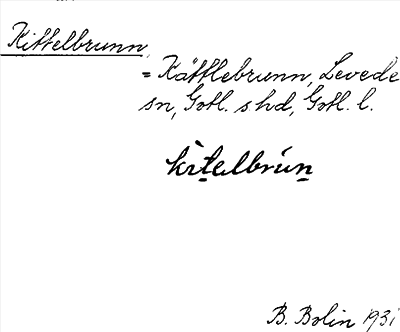 Kittelbrunn,
= Kättlebrunn, Levede
sn, Gotl. s hd, Gotl. l.
kìt̲elbrún̲
B. Bolin 1931